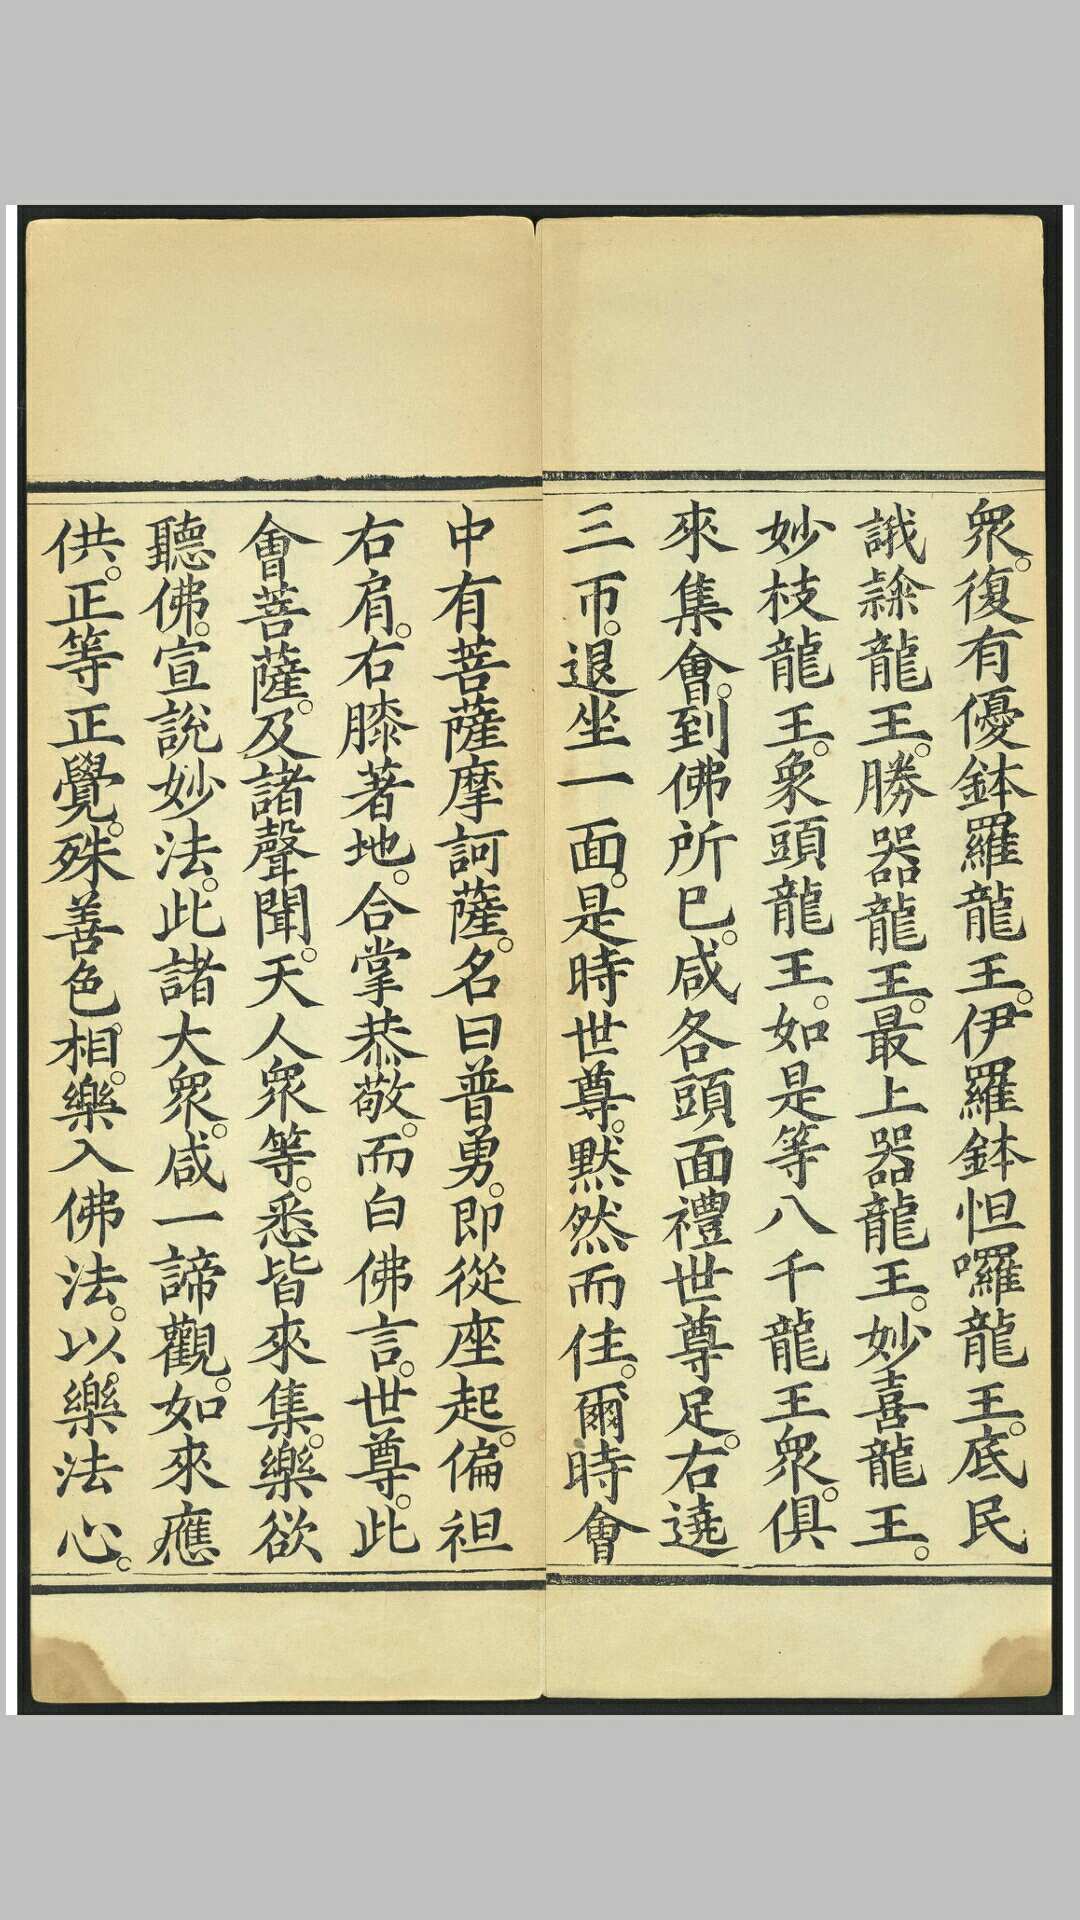 衆。復有優鉢羅龍王。伊羅鉢怛囉龍王。底民
誐隷龍王。勝器龍王。最上器龍王。妙喜龍王。
妙枝龍王。象頭龍王。如是等八千龍王衆。俱
來集會。到佛所已。咸各頭面禮世尊足。右遶
三帀。退坐一面。是時世尊。默然而住。爾時會
中有菩薩摩訶薩。名曰普勇。即從座起。偏袒
右肩。右膝著地。合掌恭敬。而白佛言。世尊。此
會菩薩。及諸聲聞。天人衆等。悉皆來集。樂欲
聽佛。宣說妙法。此諸大衆。咸一諦觀。如來應
供。正等正覺。殊善色相。樂入佛法。以樂法心。